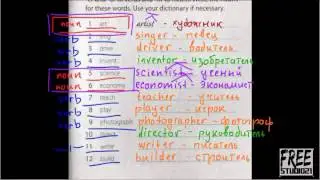 for these words. Use your dictionary if necessary.
noun 1 art artist - художник
verb 2 sing singer - певец
verb 3 drive driver - водитель
verb 4 invent inventor - изобретатель
noun 5 science scientist - ученый
noun 6 economy economist - экономист
verb 7 teach teacher - учитель
verb 8 play player - игрок
verb 9 photograph photographer - фотограф
10 direct director - руководитель
11 write writer - писатель
12 build builder - строитель
FREE
STUDIO21